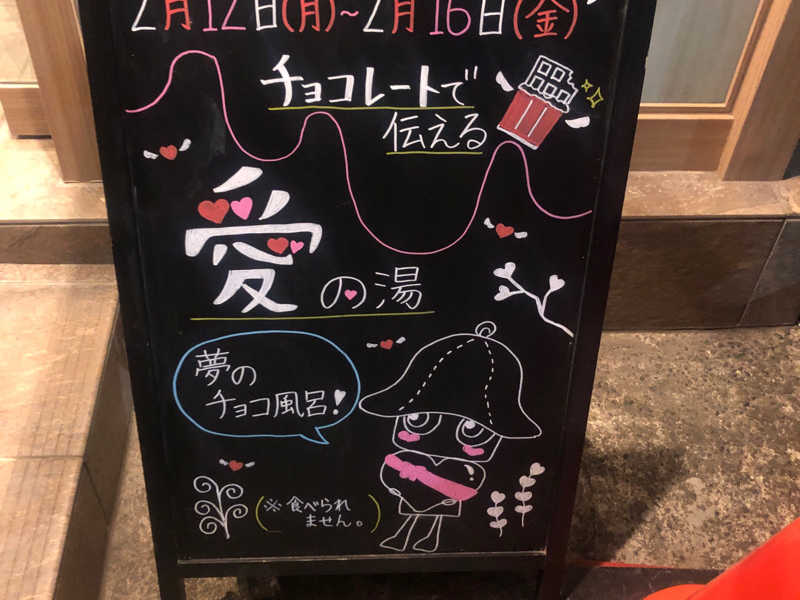 2月12日(月)~2月16日(金)
チョコレートで
伝える
愛の湯
夢の
チョコ風呂!
(※食べられ
ません。)